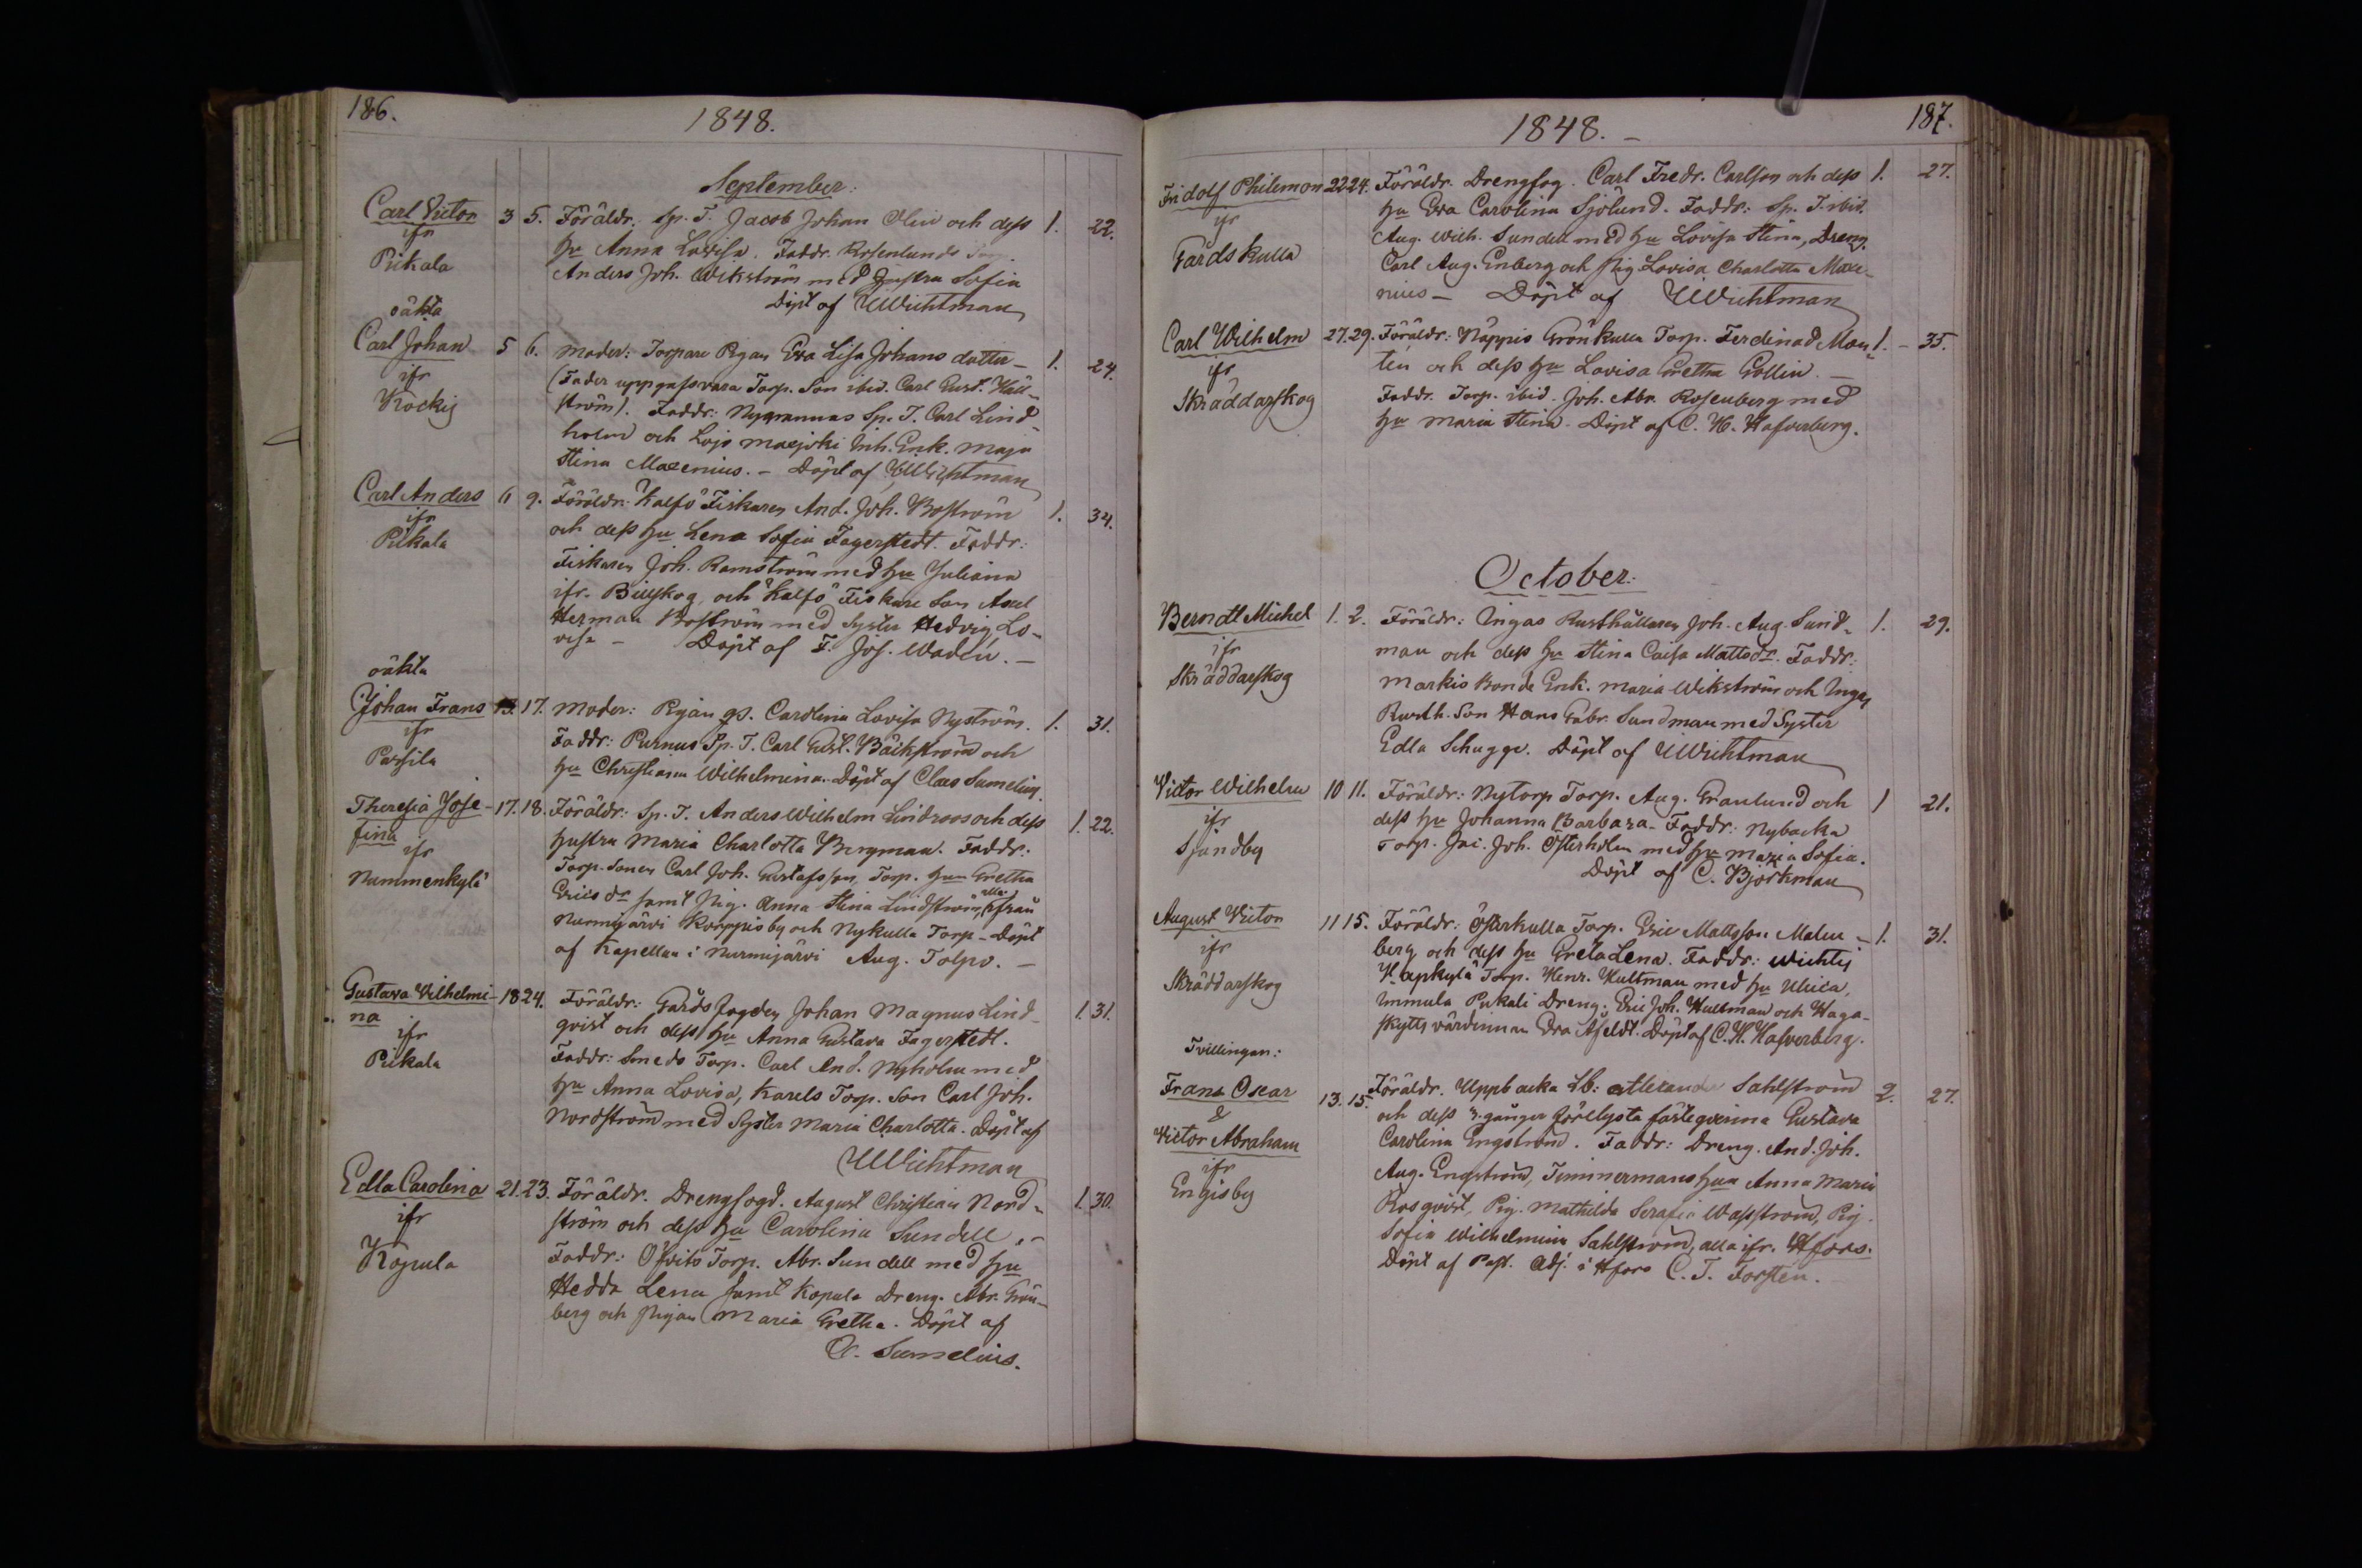 186.
1848.
September:
Carl Victor 3 5. Föräldr: Sp. T. Jacob Johan Olin och dess 1. 22.
ifr
Pikala
Hu Anna Lovisa. Faddr. Rosenlunds
Anders Joh. Wikström med Hustru Sofia
Döpt af UWichtman
oäkta
Carl Johan 5 6. Moder: Torpare Pigan Eva Lisa Johans dotter – 1. 24.
ifr
Köckig
(Fader uppgafs vara Torp. Son ibid. Carl Gust. Häll-
ström). Faddr: Nygrannas Sp. T. Carl Lind-
holm och Lojo Maxjoki Inh. Enk. Maja
Stina Maxenius. – Döpt af UWichtman
Carl Anders 6 9. Föräldr: Kalfö Fiskaren And. Joh. Boström 1. 34.
ifr
Pikala
och dess Hu Lena Sofia Fagerstedt. Faddr:
Fiskaren Joh. Ramström med Hu Juliana
ifr. Billskog, och Kalfö Fiskare Son Axel
Herman Boström med Syster Hedvig Lo-
visa – Döpt af F. Jos. Wadén. –
oäkta
Johan Frans 13. 17. Moder: Pigan gs. Carolina Lovisa Nyström. 1. 31.
ifr
Parsila
Faddr: Purnus Sp. T. Carl Gust. Bäckström och
Hu Christiana Wilhelmina. Döpt af Claes Sumelius.
Theresia Jose- 17. 18. Föräldr: Sp. T. Anders Wilhelm Lindroos och dess 1. 22.
fina
ifr
Nummenkylä
Hustru Maria Charlotta Bergman. Faddr:
Torp. Sonen Carl Joh. Gustafsson, Torp. Hun Gretha
Ericsdr samt Pig. Anna Stina Lindström, alla ifrån
Nurmijärvi Korppisby och Nykulla Torp – Döpt
af Kapellan i Nurmijärvi Aug. Tolpo. –
Gustava Wilhelmi- 18 24. Föräldr: Gårdsfogden Johan Magnus Lind- 1. 31.
na
ifr
Pikala
qvist och dess Hu Anna Gustava Fagerstedt.
Faddr: Smeds Torp. Carl And. Nyholm med
Hu Anna Lovisa, Karels Torp. Son Carl Joh.
Nordström med Syster Maria Charlotta. Döpt af
UWichtman
Edla Carolina 21. 23. Föräldr. Drengfogd. August Christian Nord- 1. 30.
ifr
Kopula
ström och dess Hu Carolina Sundell. –
Faddr: Öfvits Torp. Abr. Sundell med Hu
Hedda Lena samt Kopula Dreng. Abr. Grön-
berg och Pigan Maria Gretha. Döpt af
C. Sumelius.
1848. –
187.
Fridolf Philemon 22 24. Föräldr. Drengfog. Carl Fredr. Carlson och dess 1. 27.
ifr
Gårdskulla
Hu Eva Carolina Sjölund. Faddr: Sp. T. ibid.
Aug. Wilh. Sundell med Hu Lovisa Stina, Dreng.
Carl Aug. Enberg och Pig Lovisa Charlotta Maxe-
nius – Döpt af UWichtman
Carl Wilhelm 27. 29. Föräldr: Näppis Grönkulla Torp. Ferdinad Mon- 1. – 35.
ifr
Skräddarskog
tén och dess Hu Lovisa Gretha Gollin. –
Faddr. Torp. ibid. Joh. Abr. Rosenberg med
Hu Maria Stina. Döpt af C. H. Hafverberg.
October:
Berndt Michel 1. 2. Föräldr: Ingas Rusthållaren Joh. Aug. Sund- 1. 29.
ifr
Skräddarskog
man och dess Hu Stina Caisa Mattsdr. Faddr:
Markis Bonde Enk. Maria Wikström och Ingas
Rusth. Son Hans Gabr. Sundman med Syster
Edla Schugge. Döpt af UWichtman
Victor Wilhelm 10 11. Föräldr: Nytorp Torp. Aug. Granlund och 1 21.
ifr
Sjundby
dess Hu Johanna Barbara. Faddr: Nybacka
Torp. Jac. Joh. Österholm med Hu Maria Sofia.
Döpt af C. Björkman
August Victor 11 15. Föräldr: Österkulla Torp. Eric Mattsson Malm- 1. 31.
ifr
Skräddarskog
berg och dess Hu Greta Lena. Faddr: Wichtis
Haapkylä Torp. Henr. Hultman med Hu Ulrica,
Immula Pukali Dreng. Eric Joh. Hultman och Haga-
skytts värdinnan Eva Asfeldt. Döpt af C. H. Hafverberg.
Tvillingar:
Frans Oscar 13. 15. Föräldr. Uppbacka Lb: Allexander Sahlström 2. 27.
&
Victor Abraham
ifr
Engisby
och dess 3. gånger förelysta fästeqvinna Gustava
Carolina Engström. Faddr: Dreng. And. Joh.
Aug. Engström, Timmermans Hun Anna Maria
Rosqvist, Pig. Mathilda Serafia Wasström, Pig.
Sofia Wilhelmina Sahlström, alla ifr. Hfors.
Döpt af Past. Adj. i Hfors C. T. Forstén. –